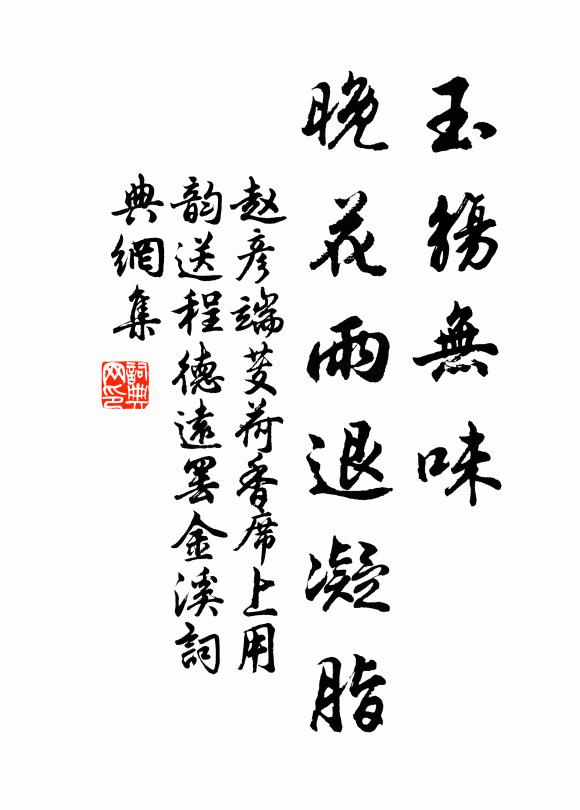 玉觴無味
晚花雨退凝脂
赵彦端芰荷香席上用
韵送程德遠罢金溪詞
典網集
詞典网印